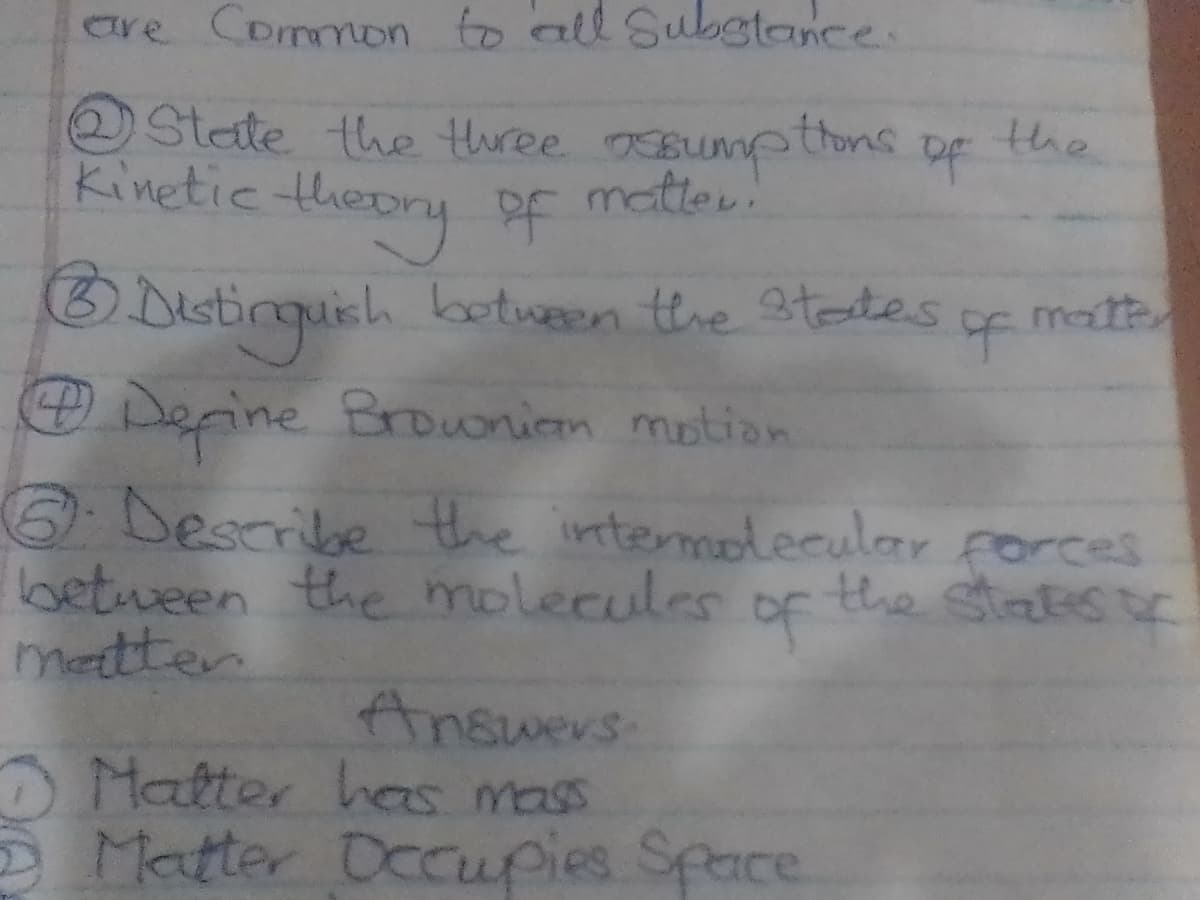 are Common to all Substance.
② State the three assumptions of the
Kinetic theory of matter.
③ Distinguish between the States of matter
④ Define Brownian motion
⑤. Describe the intermolecular forces
between the molecules of the states of
matter.
Answers.
① Matter has mass
② Matter Occupies Space